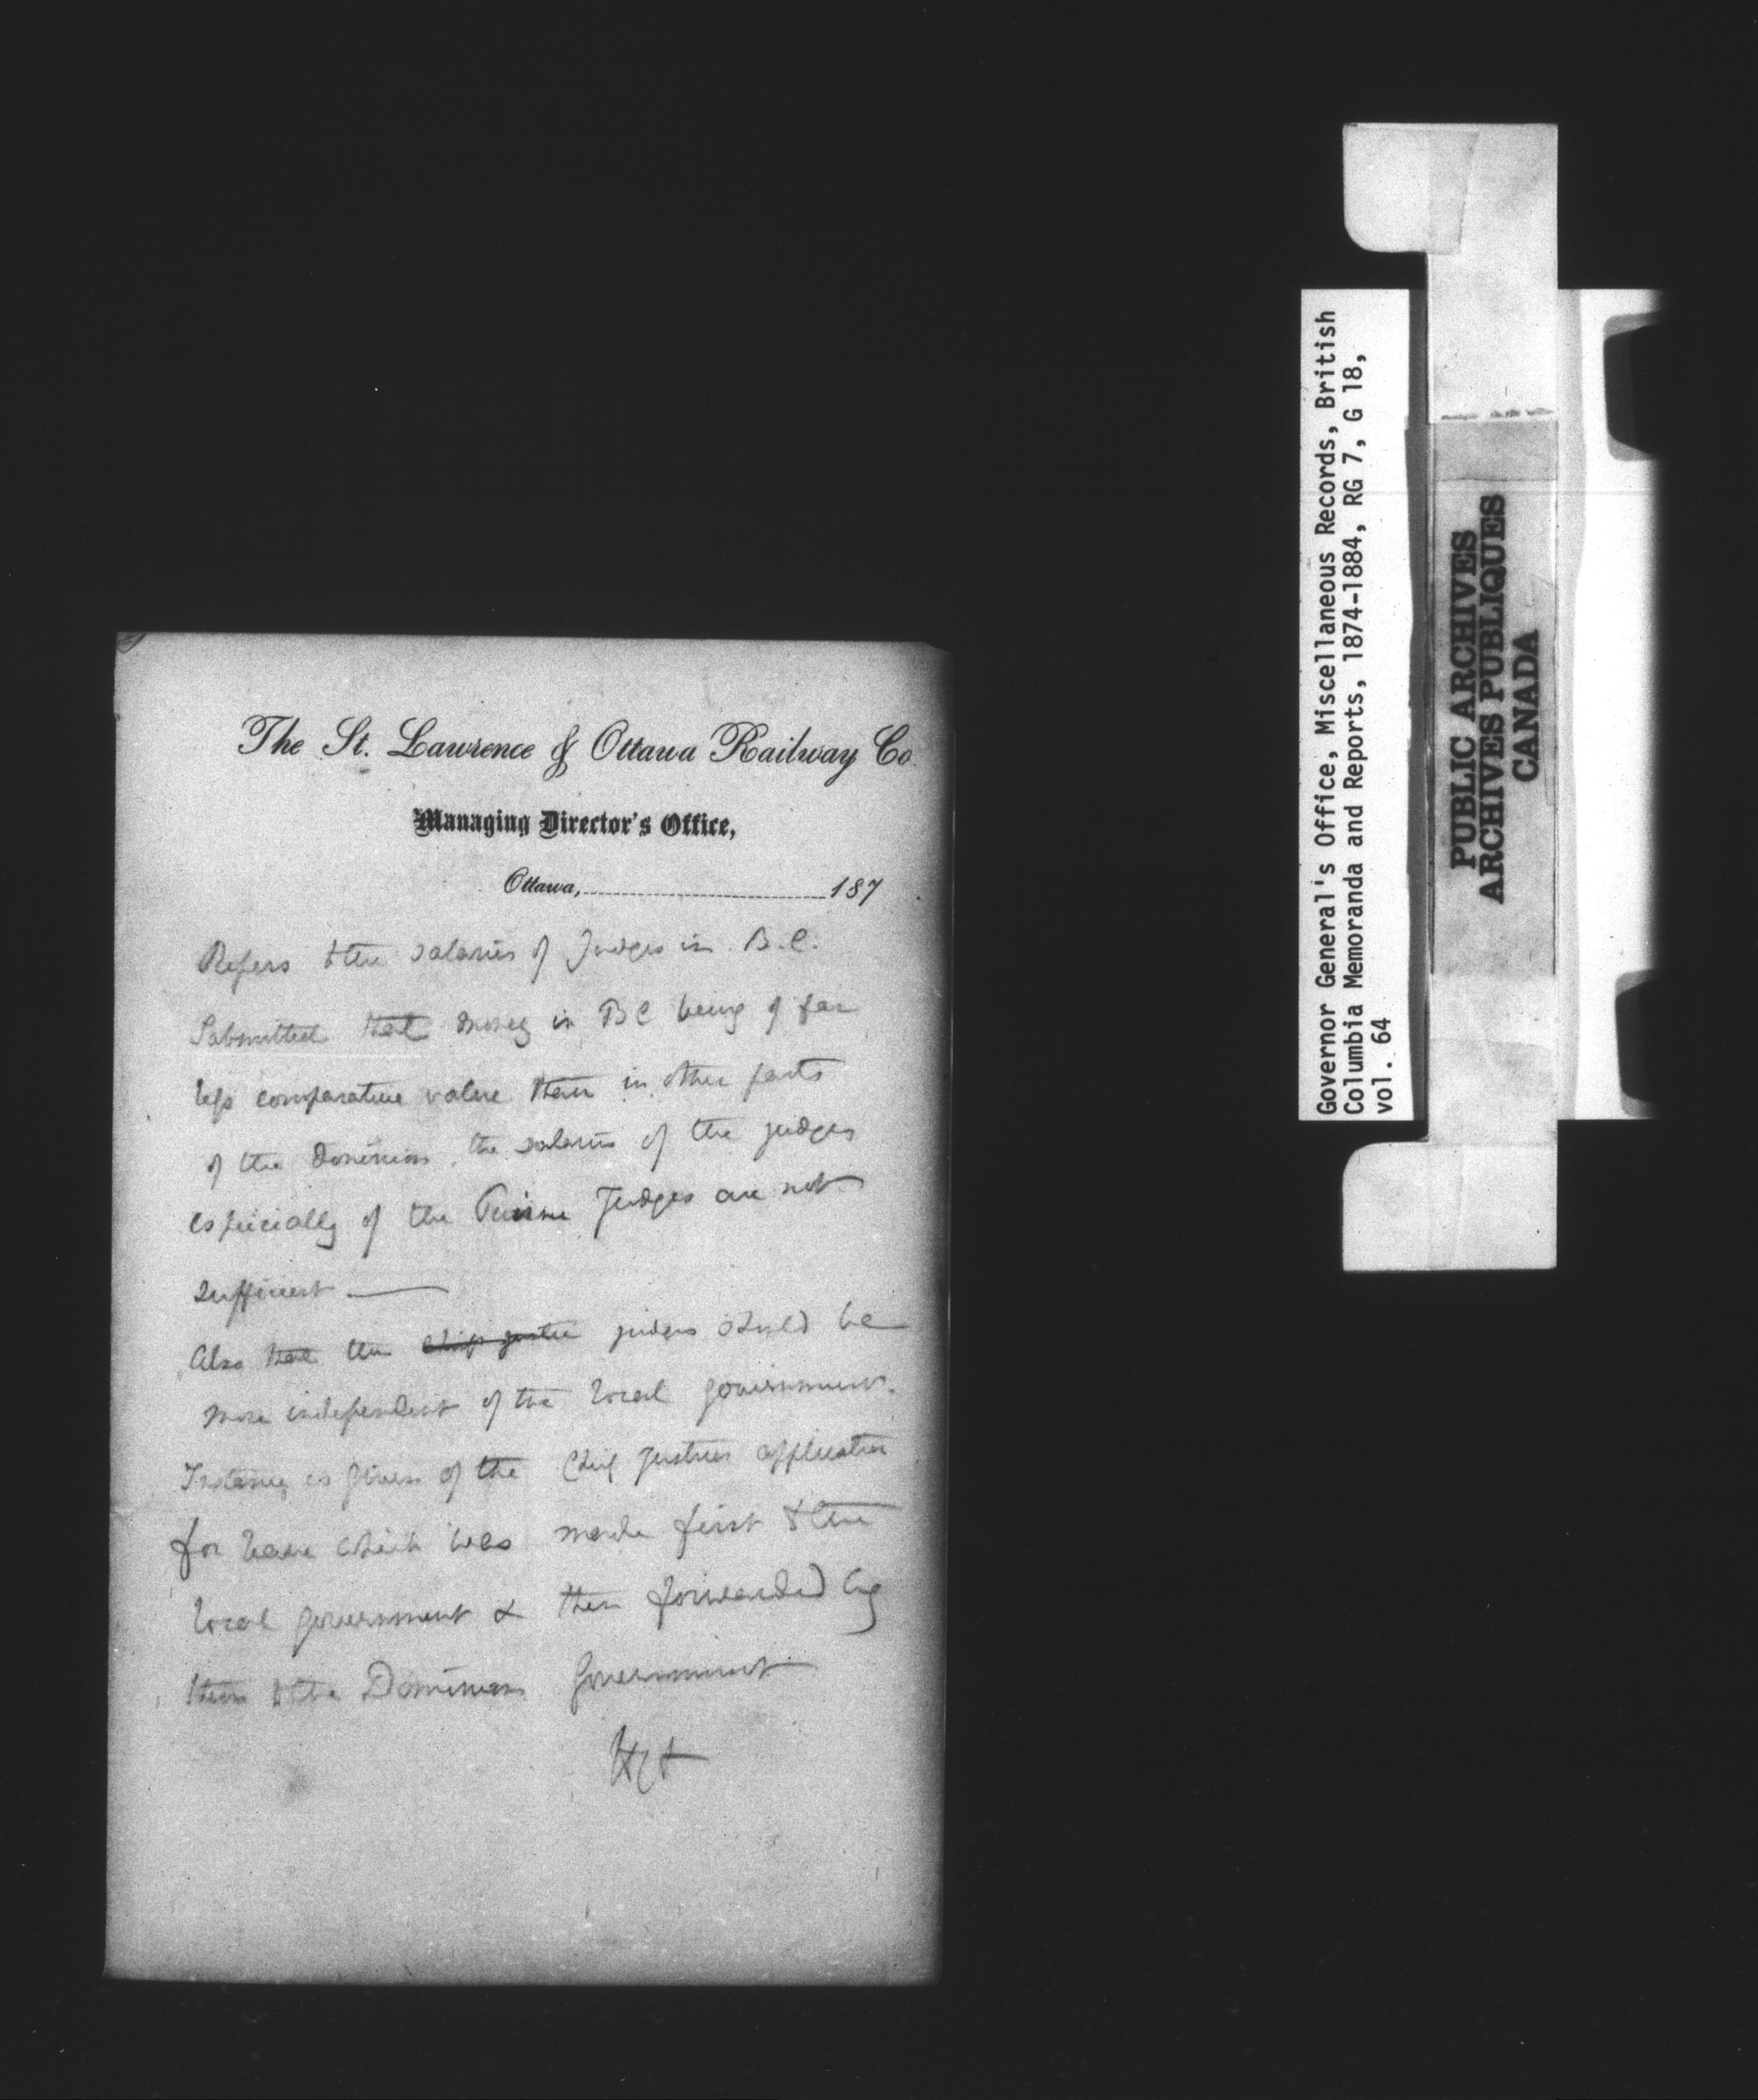 The St. Lawrence & Ottawa Railway Co.
Managing Director's Office,
Ottawa, 187
Refers to the salaries of Judges in B.C.
Submitted that money in BC being of far
less comparative value than in other parts
of the Dominion, the salaries of the judges
especially of the Puisne Judges are not
sufficient —
Also that the chief justice judges should be
more independent of the local government.
Instance is given of the Chief Justices application
for leave which was made first to the
local government & then forwarded by
them to the Dominion Government
Governor General's Office, Miscellaneous Records, British
Columbia Memoranda and Reports, 1874-1884, RG 7, G 18,
vol. 64
PUBLIC ARCHIVES
ARCHIVES PUBLIQUES
CANADA